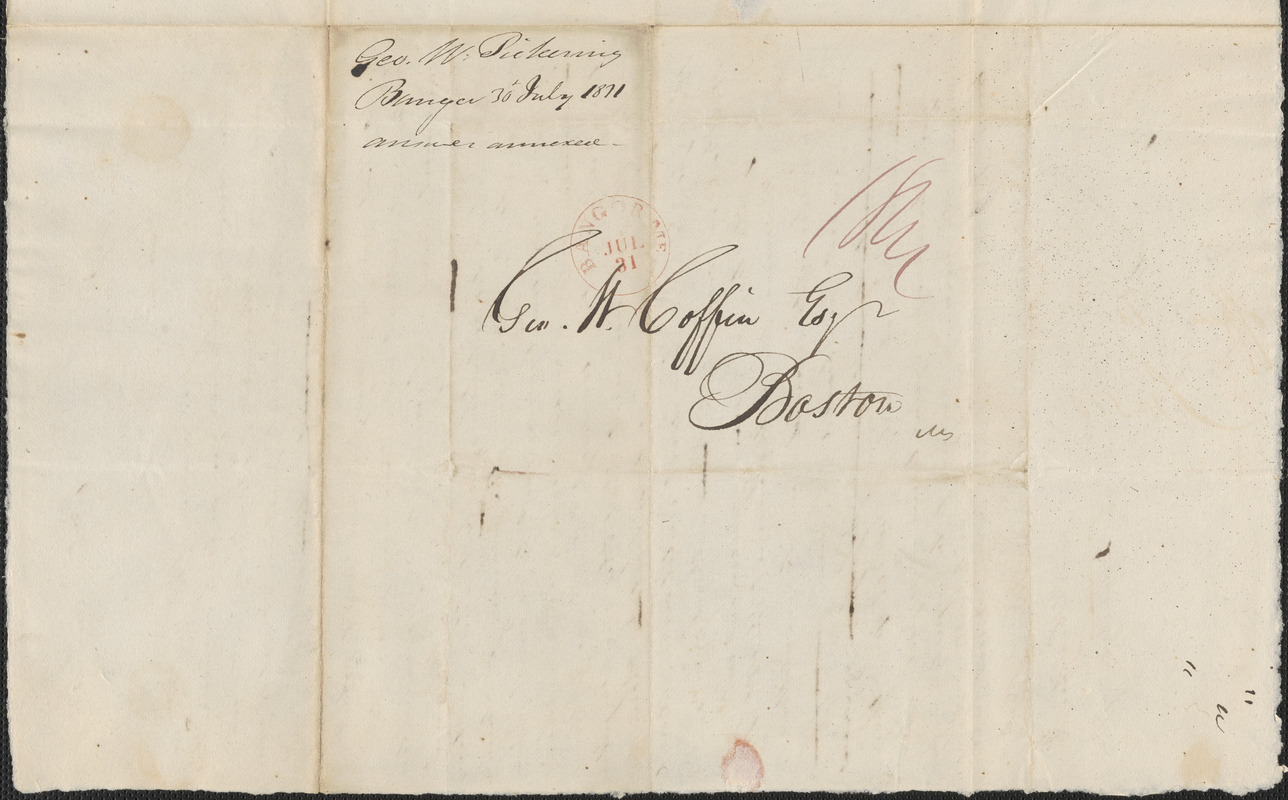 Geo. W. Pickering
Bangor 30 July 18
answer annexed -
BANGOR ME
JUL
31
Geo. W. Coffin Esqr
Boston
Ms